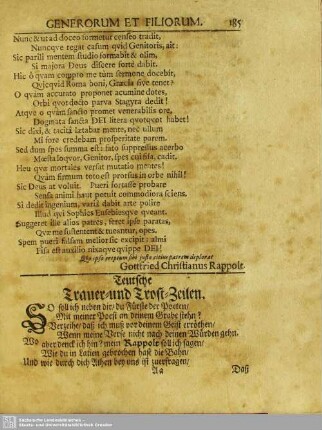 GENERORUM ET FILIORUM. 185
Nunc & ut ad doceo formetur censeo tradit,
Nuncqve regat casum qvid Genitoris, ait:
Sic parili mentem studio formabit & olim,
Si majora Deus discere forte dabit.
Hic ô qvam compto me tum sermone docebit,
Qvicqvid Roma boni, Græcia sive tenet?
O qvam accurato proponet acumine dotes,
Orbi qvot docto parva Stagyra dedit!
Atqve o qvam sancto promet venerabilis ore,
Dogmata sancta DEI litera qvotqvot habet!
Sic dixi, & tacitâ lætabar mente, nec ullum
Mi fore credebam prosperitate parem.
Sed dum spes summa est: fato suppressus acerbo
Mœsta loqvor, Genitor, spes cui fisa, cadit.
Heu qva mortales versat mutatio mentes!
Qvàm firmum toto est prorsus in orbe nihil!
Sic Deus at voluit. Pueri forsasse probare
Sensa animi haut potuit commodiora sciens.
Si dedit ingenium, variâ dabit arte polire
Illud qvi Sophies Eusebiæqve qveant.
Suggeret ille alios patres, feret ipse parates,
Qvæ me sustentent & tueantur, opes.
Spem pueri falsam melior sic excipit: almi
Fisa est auxilio nixaqve qvippe DEI!
Gottfried Christianus Rappolt.
Teutsche
Trauer-und Trost-Zeilen.
SO soll ich neben dir/ du Fürste der Poeten/
Mit meiner Poesi an deinem Grabe stehn?
Verzeihe/ daß ich muß vor deinem Geist erröthen/
Wenn meine Verße nicht nach deinen Würden gehn.
Wo aber denck ich hin? mein Rappolt soll ich sagen/
Wie du in Latien gebrochen hast die Bahn/
Und wie durch dich Athen bey uns ist zuerfragen/
Aa Daß